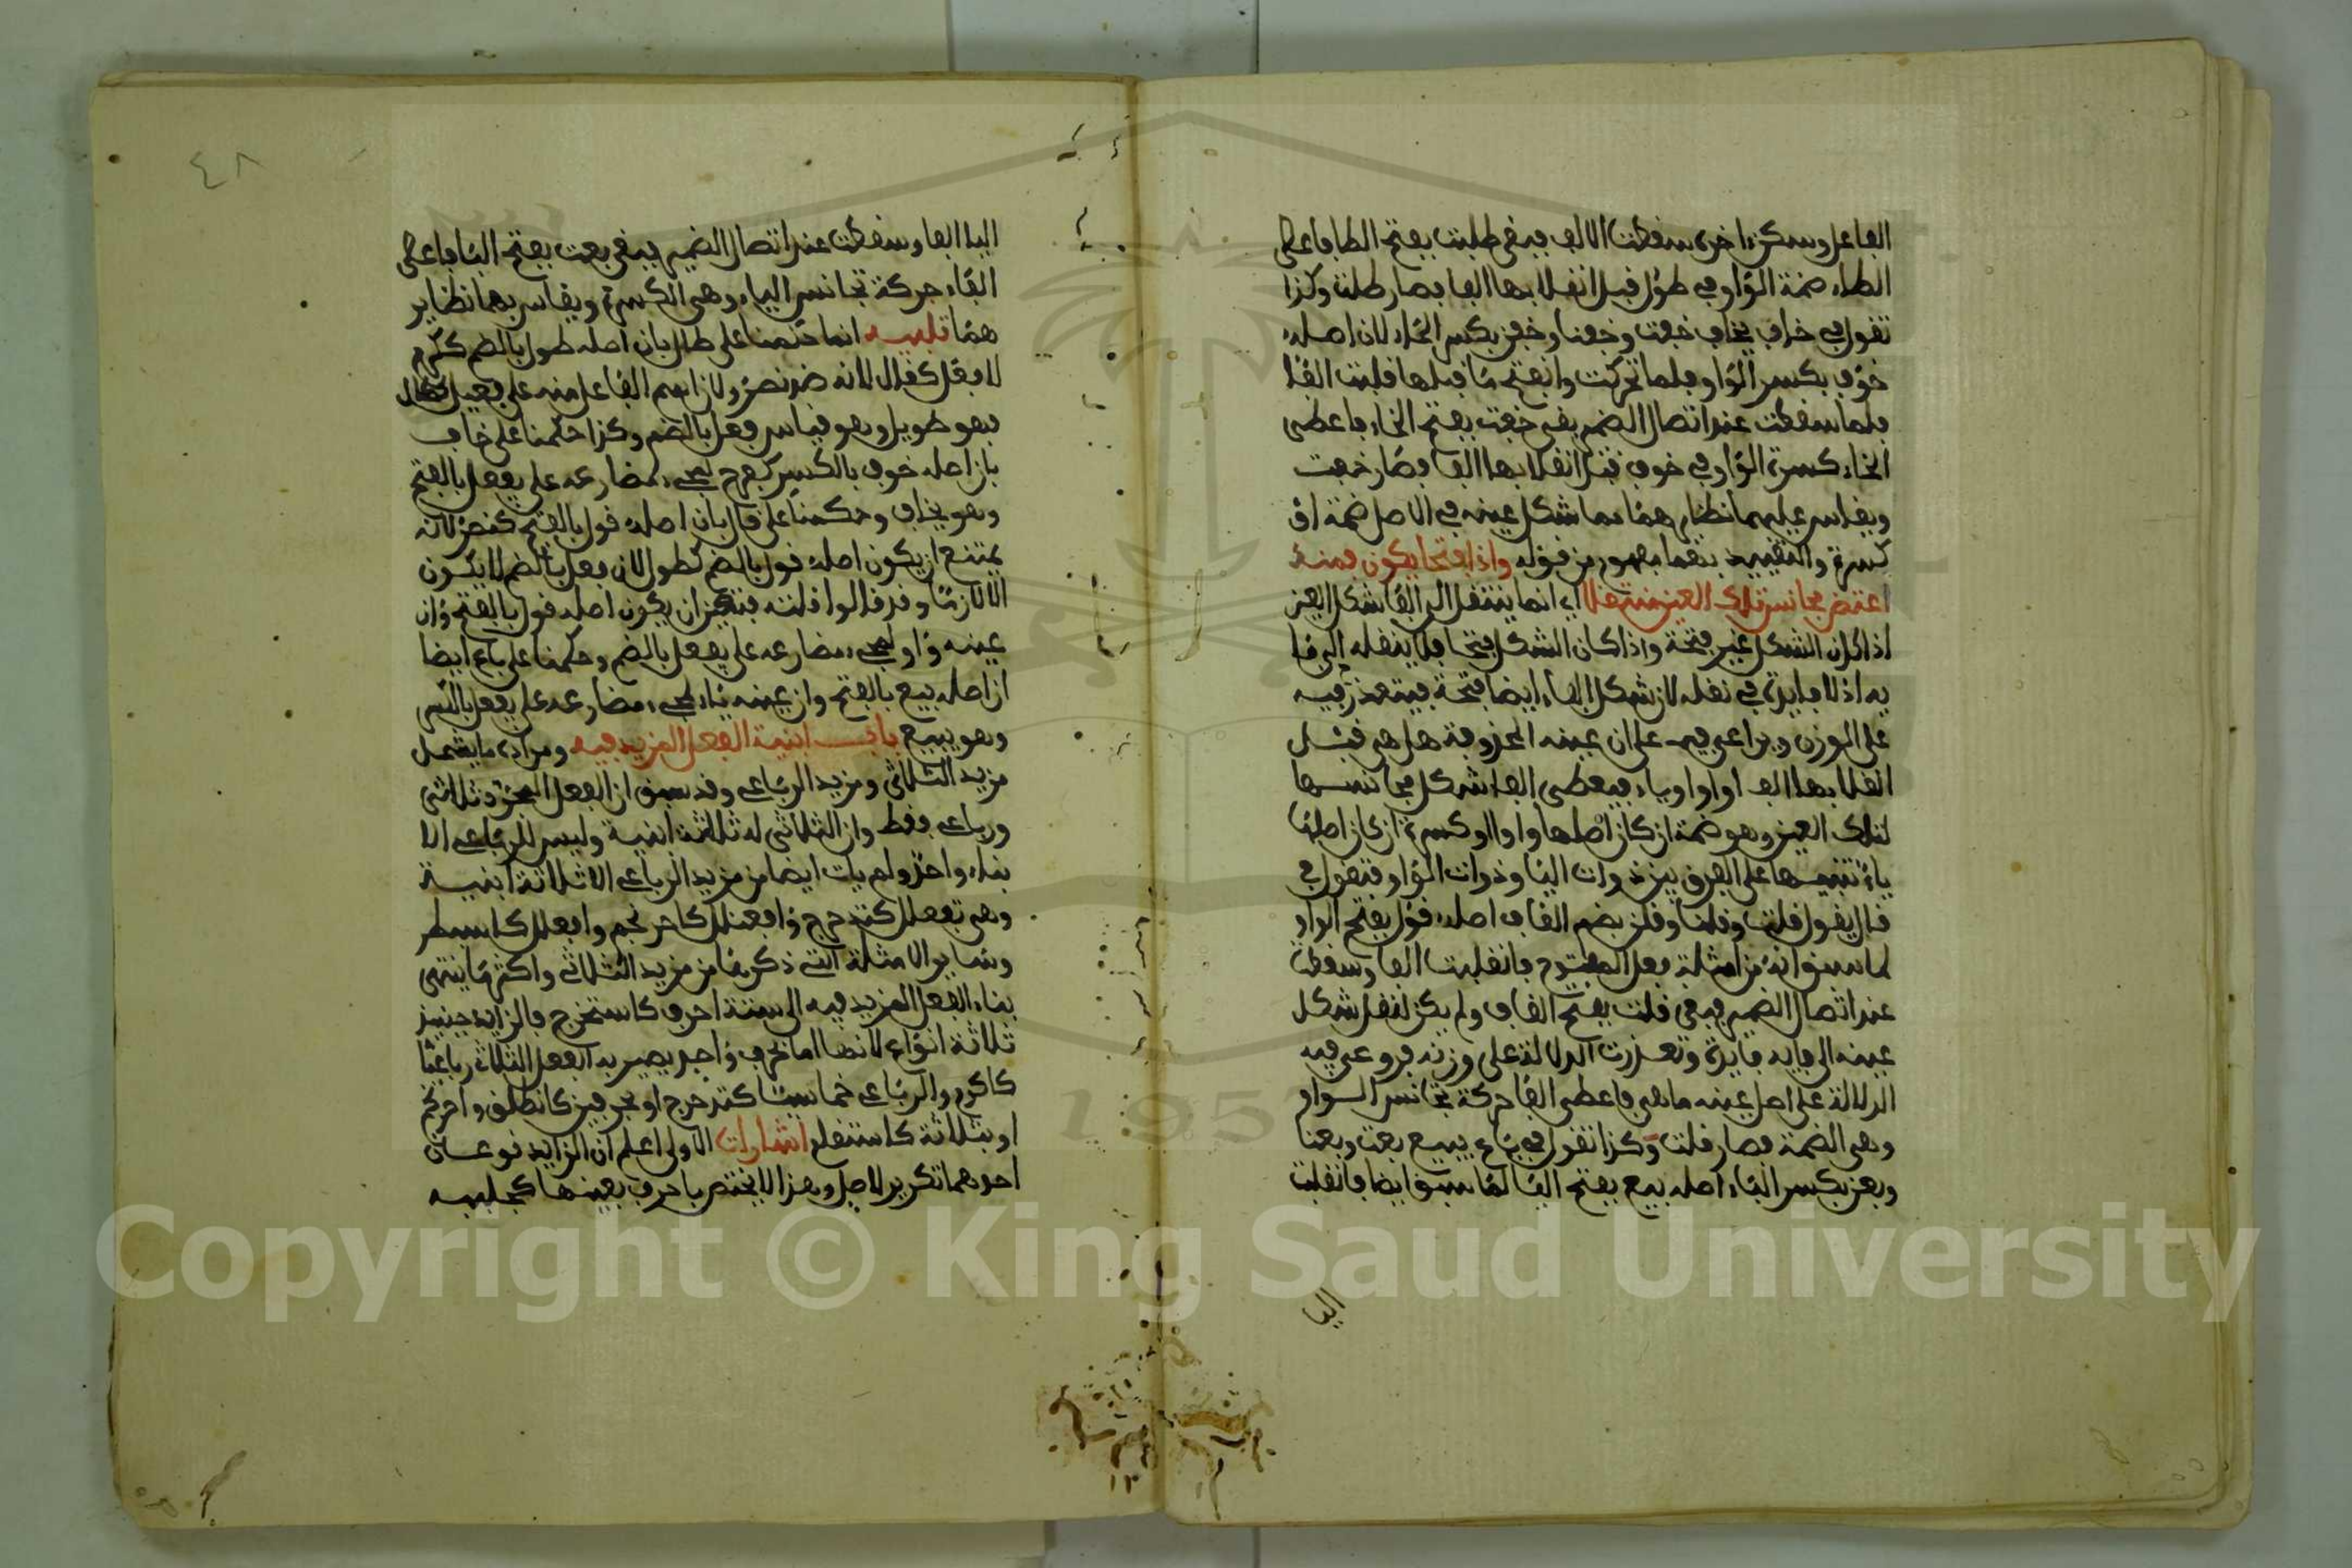 الفاعل وسكن اخره سقطت الالف فبقى طلت بفتح الطا فاعطى
الطاء ضمة الواو في طول قبل انقلابها الفا فصار طلت وكذا
تقول في خاف يخاف خفت وخفنا وخفن بكسر الخاء لان اصله
خوف بكسر الواو فلما تحركت وانفتح ما قبلها قلبت الفا
فلما سقطت عند اتصال الضمير بقى خفت بفتح الخاء فاعطى
الخاء كسرة الواو في خوف قبل انقلابها الفا فصار خفت
ويقاس عليهما نظايرهما مما شكل عينه في الاصل ضمة او
كسرة والتقييد بهما مفهوم من قوله واذا فتحا يكون فمنه
اعتض مجانس تلك العين منتقلا اي انما ينتقل الى الفا شكل العين
اذا كان الشكل غير فتحة واذا كان الشكل فتحا فلا ينقله الى فا
يه اذ لا فايدة في نقله لان شكل الفاء ايضا فتحة فيتعذر فيه
على الوزن ويراعى فيه على ان عينه المحذوفة هل هي قبل
انقلابها الف او واو او ياء فيعطى الفا شكل مجانسها
لتلك العين وهو ضمة ان كان اصلها واوا او كسرة ان كان اصلها
ياء تنبيها على الفرق بين ذوات اليا وذوات الواو فتقول في
قال يقول قلت وقلنا وقلن بضم القاف اصله قول بفتح الواو
لما سبق انه من امثلة فعل المفتوح فانقلبت الفا وسقطت
عند اتصال الضمير فبقى قلت بفتح القاف ولم يكن لنقل شكل
عينه الى فايه فايدة وتعذرت الدلالة على وزنه فروعي فيه
الدلالة على اصل عينه ما هي فاعطى الفا حركة تجانس الواو
وهي الضمة فصار قلت وكذا تقول في باع يبيع بعت وبعنا
وبعن بكسر الباء اصله بيع بفتح اليا لما سبق ايضا فانقلبت
اليا
اليا الفا وسقطت عند اتصال الضمير فبقى بعت بفتح البا فاعطى
الفاء حركة تجانس الياء وهي الكسرة ويقاس بهما نظاير
هما تنبيه انما حكمنا على طال بان اصله طول بالضم ككرم
لا فعل كقال لانه ضد قصر ولان اسم الفاعل منه على فعيل
فهو طويل وهو قياس فعل بالضم وكذا حكمنا على خاف
بان اصله خوف بالكسر كفرح لمجيء مضارعه على يفعل بالفتح
وهو يخاف وحكمنا على قال بان اصله قول بالفتح كنصر لانه
يمتنع ان يكون اصله قول بالضم كطول لان فعل بالضم لا يكون
الا لازما وقد قالوا قلته فتعين ان يكون اصله قول بالفتح وان
عينه واو لمجيء مضارعه على يفعل بالضم وحكمنا على باع ايضا
ان اصله بيع بالفتح وان عينه ياء لمجيء مضارعه على يفعل بالكسر
وهو يبيع باب ابنية الفعل المزيد فيه ومراده ما يشمل
مزيد الثلاثي ومزيد الرباعي وقد سبق ان الفعل المجرد ثلاثي
ورباعي فقط وان الثلاثي له ثلاثة ابنية وليس للرباعي الا
بناء واحد ولم يات ايضا من مزيد الرباعي الا ثلاثة ابنية
وهي تفعلل كتدحرج وافعنلل كاحرنجم وافعلل كاسبطر
وساير الامثلة التي ذكرها من مزيد الثلاثي واكثر ما ينتهى
بناء الفعل المزيد فيه الى ستة احرف كاستخرج فالزايد حينيذ
ثلاثة انواع لانها اما بحرف واحد يصير به الفعل الثلاثي رباعيا
كاكرم والرباعي خماسيا كتدحرج او بحرفين كانطلق واحرنجم
او بثلاثة كاستفعل اشارات الاولى اعلم ان الزايد نوعان
احدهما تكرير لاصل وهذا لا يختص باحرف بعينها كجلببه
٤٨